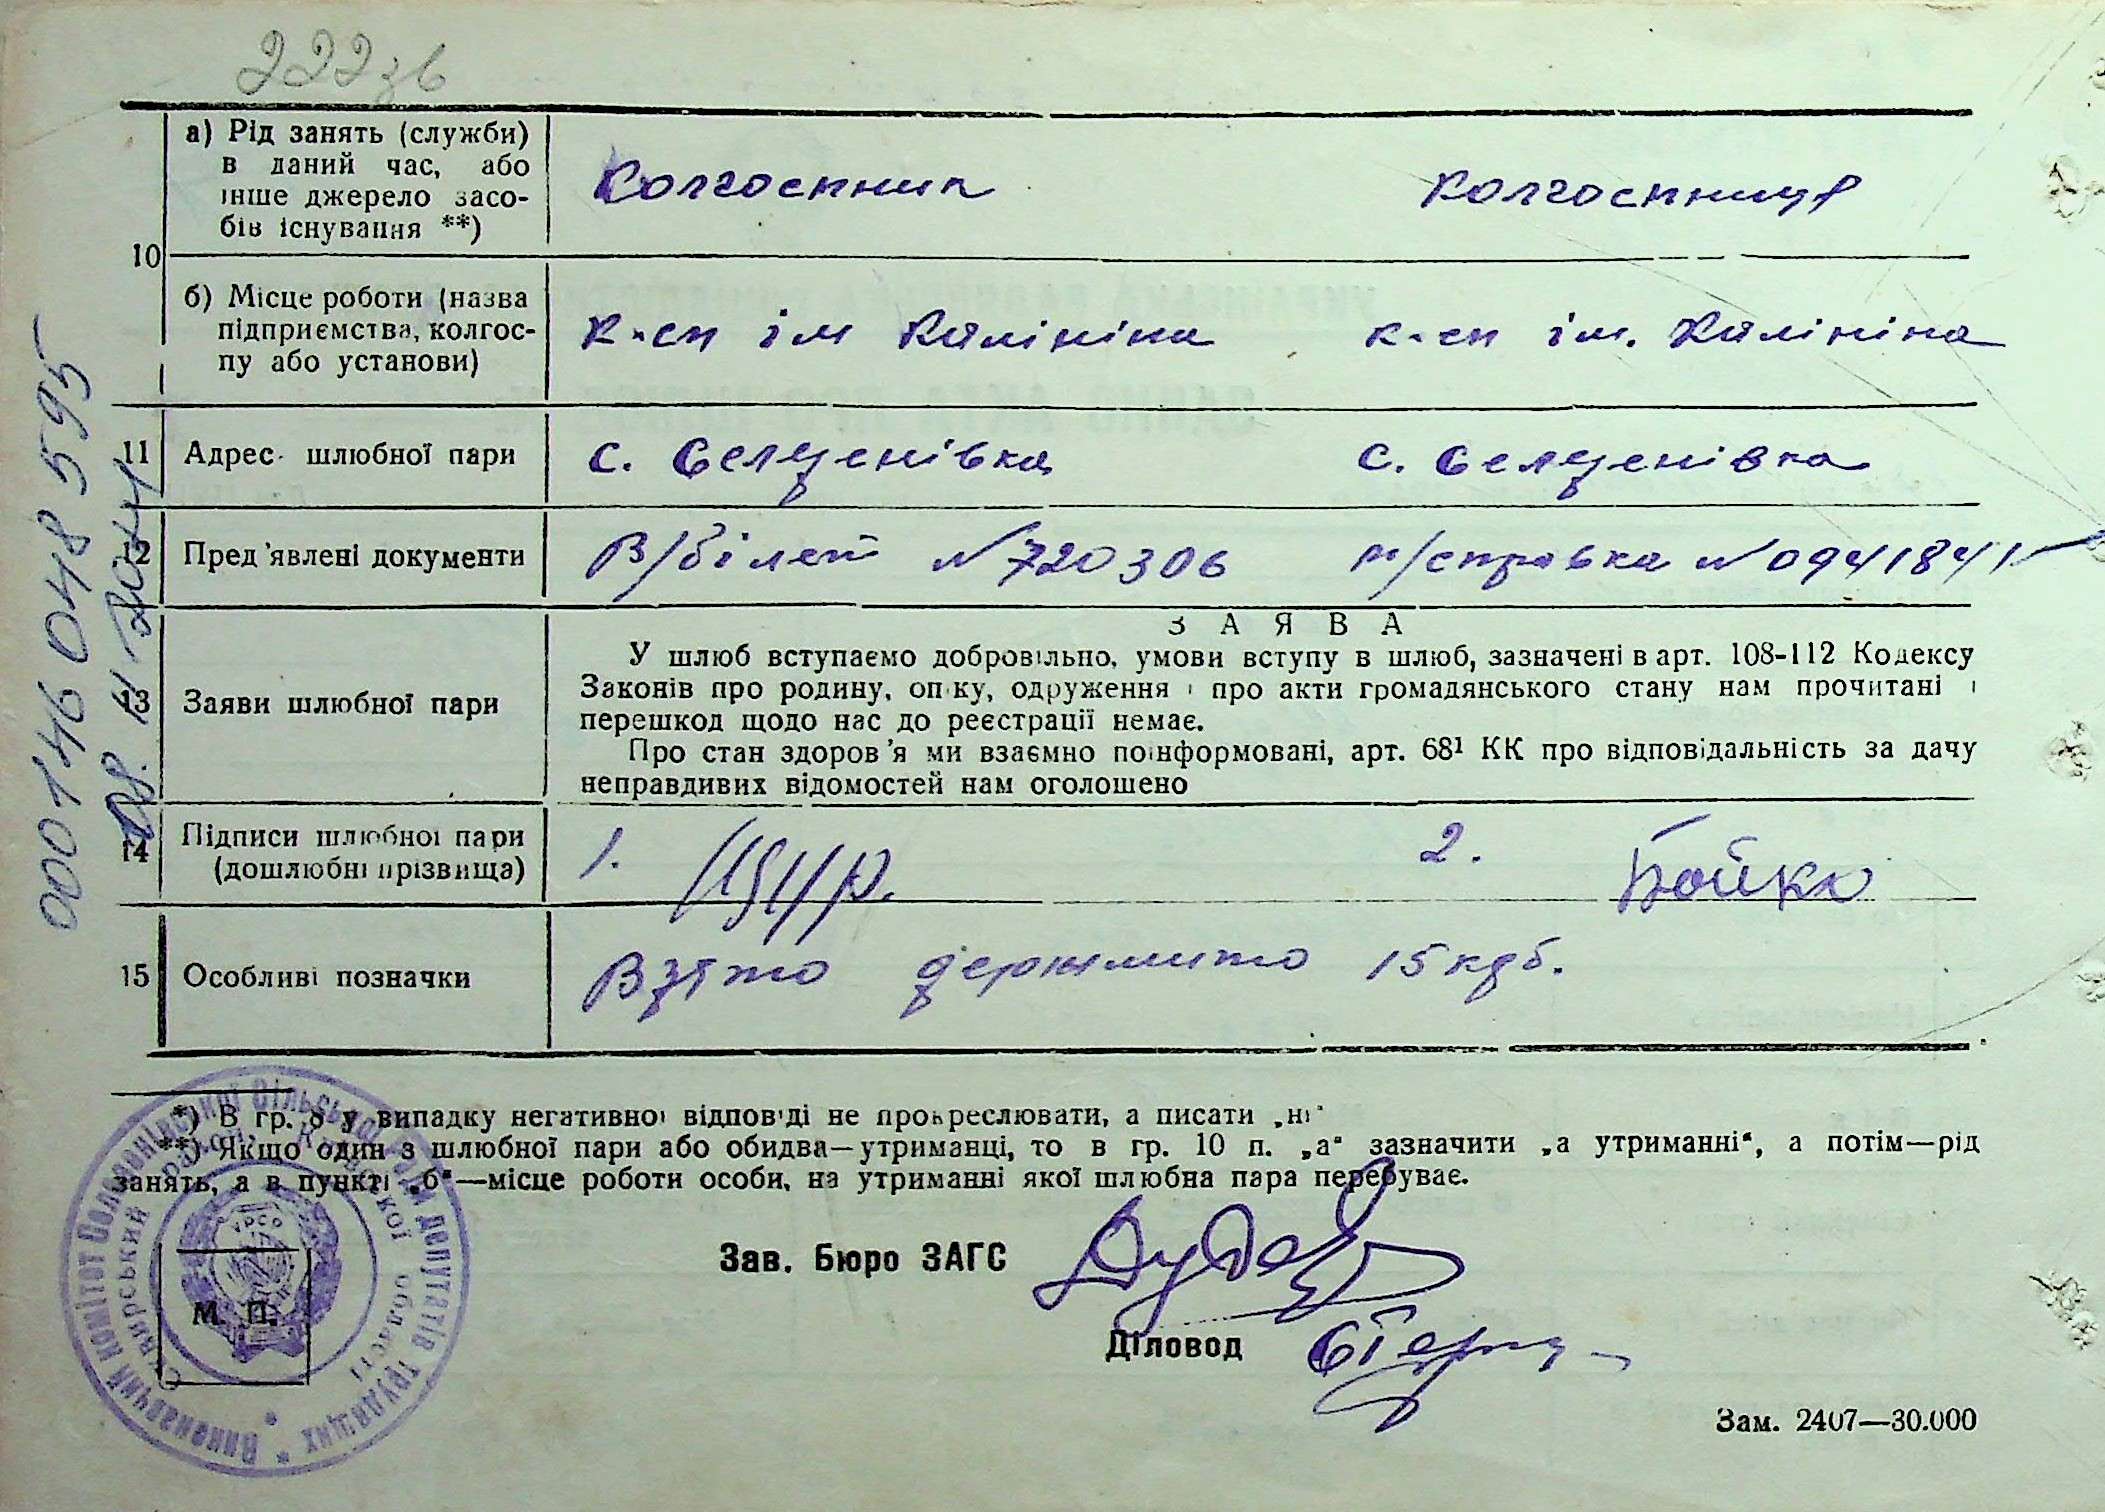 222зв
а) Рід занять (служби)
в даний час, або
інше джерело засо-
бів існування **)
Колгоспник
колгоспниця
10
б) Місце роботи (назва
підприємства, колгос-
пу або установи)
к-сп ім Калініна
к-сп ім. Калініна
11
Адрес шлюбної пари
с.
с.
12
Пред'явлені документи
В/білет № 720306
п/справка № 0941841
13
Заяви шлюбної пари
ЗАЯВА
У шлюб вступаємо добровільно, умови вступу в шлюб, зазначені в арт. 108-112 Кодексу
Законів про родину, опіку, одруження і про акти громадянського стану нам прочитані і
перешкод щодо нас до реєстрації немає.
Про стан здоров'я ми взаємно поінформовані, арт. 68¹ КК про відповідальність за дачу
неправдивих відомостей нам оголошено
14
Підписи шлюбної пари
(дошлюбні прізвища)
1.
2. Бойко
15
Особливі позначки
Взято держмито 15 крб.
00014604 8595
*) В гр. 8 у випадку негативної відповіді не прокреслювати, а писати „ні"
**) Якщо один з шлюбної пари або обидва—утриманці, то в гр. 10 п. „а" зазначити „а утриманні", а потім—рід
занять, а в пункті „б"—місце роботи особи, на утриманні якої шлюбна пара перебуває.
Зав. Бюро ЗАГС
Діловод
М. П.
Виконавчий комітет Соломонівської сільської ради депутатів трудящих
Сквирський район, Київської області
УРСР
Зам. 2407—30.000